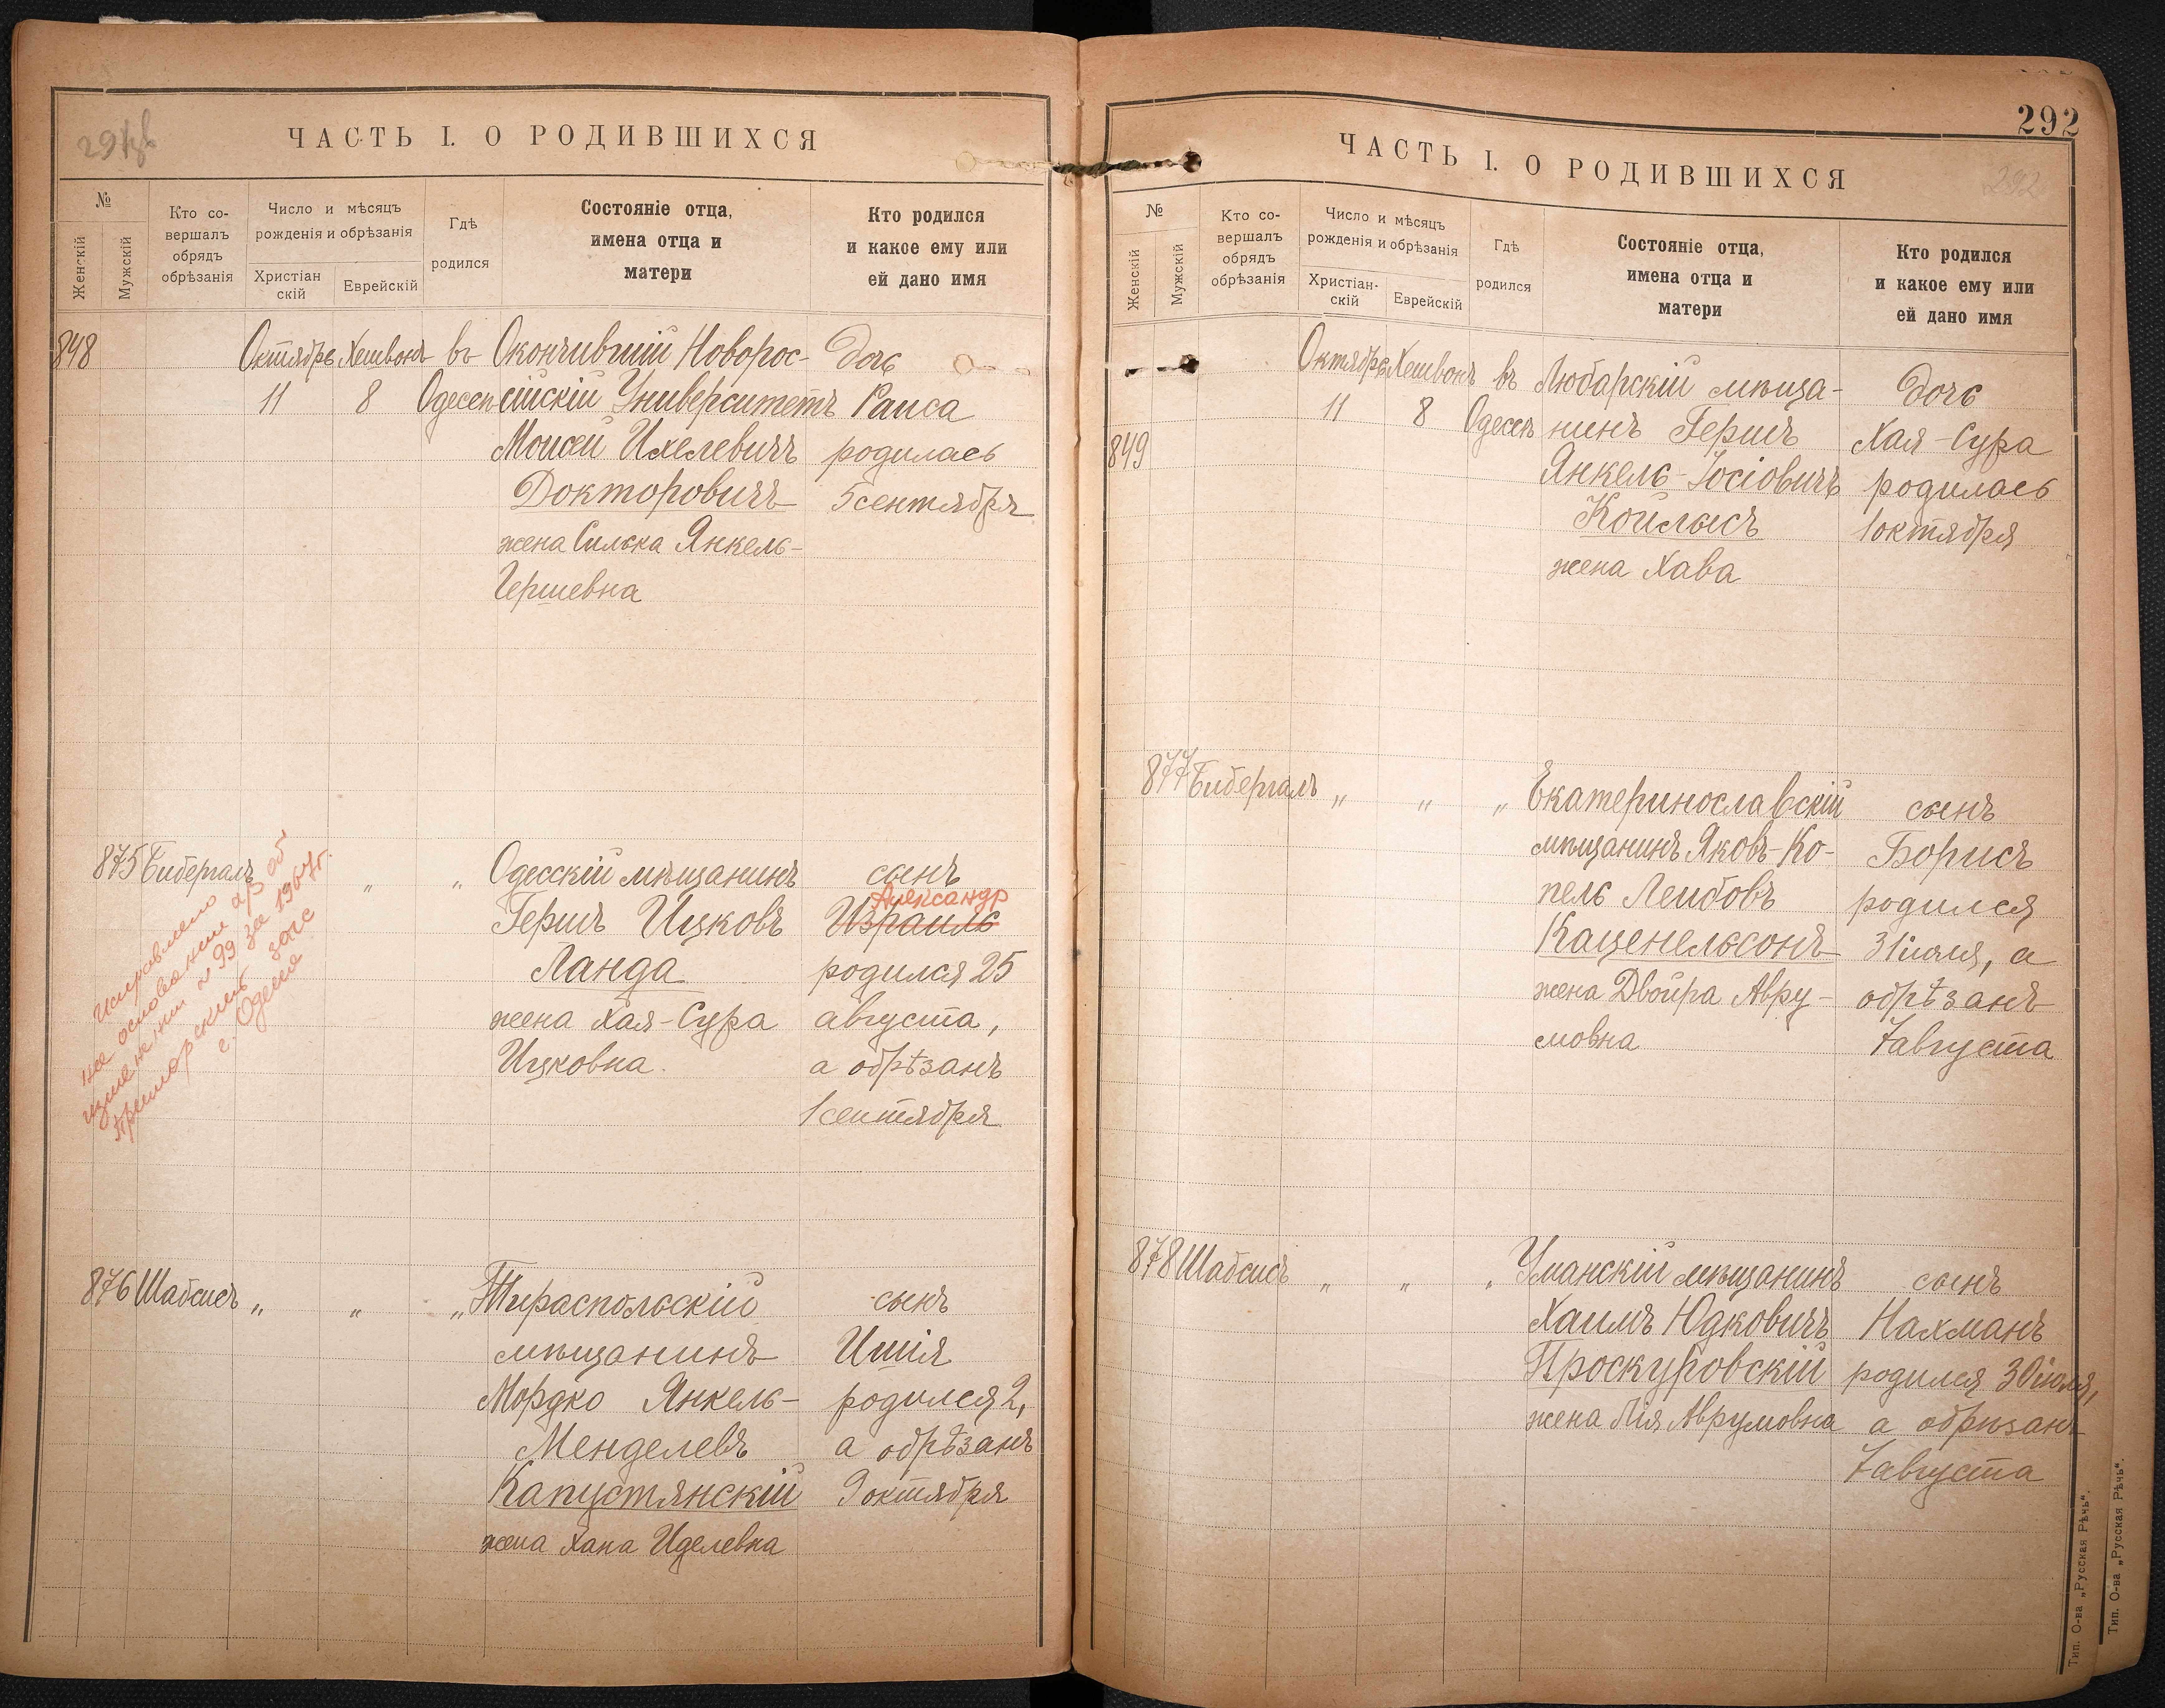 291об
ЧАСТЬ I. О РОДИВШИХСЯ
№
Женскій
Мужскій
Кто со-
вершалъ
обрядъ
обрѣзанія
Число и мѣсяцъ
рожденія и обрѣзанія
Христіан
скій
Еврейскій
Гдѣ
родился
Состояніе отца,
имена отца и
матери
Кто родился
и какое ему или
ей дано имя
848 Октябрь Хешвонъ въ Окончившій Новорос- дочь
11 8 Одессѣ сійскій Университетъ Раиса
Моисей Ихелевичъ родилась
Докторовичъ 5 сентября
жена Силька Янкель-
Гершевна
875 Бибергалъ „ „ Одесскій мѣщанинъ сынъ
Александр
Гершъ Ицковъ Израиль
Ланда родился 25
жена Хая-Сура августа,
Ицковна а обрѣзанъ
1 сентября
Исправлено
на основании а/з об
изменении № 99 за 1967г.
Приморский загс
г. Одесса
876 Шабсисъ „ „ „ Тираспольскій сынъ
мѣщанинъ Ишія
Мордко Янкель- родился 2,
Менделевъ а обрѣзанъ
Капустянскій 9 октября
жена Хана Иделевна
292
ЧАСТЬ I. О РОДИВШИХСЯ
292
№
Женскій
Мужскій
Кто со-
вершалъ
обрядъ
обрѣзанія
Число и мѣсяцъ
рожденія и обрѣзанія
Христіан-
скій
Еврейскій
Гдѣ
родился
Состояніе отца,
имена отца и
матери
Кто родился
и какое ему или
ей дано имя
Октябрь Хешвонъ въ Любарскій мѣща- дочь
849 11 8 Одессѣ нинъ Гершъ Хая-Сура
Янкель-Іосіовичъ родилась
Койлысъ 1 октября
жена Хава
877 Бибергалъ „ „ „ Екатеринославскій сынъ
мѣщанинъ Яковъ-Ко- Борисъ
пель Лейбовъ родился
Каценельсонъ 31 іюля, а
жена Двойра Авру- обрѣзанъ
мовна 7 августа
878 Шабсисъ „ „ „ Уманскій мѣщанинъ сынъ
Хаимъ Юдковичъ Нахманъ
Проскуровскій родился 30 іюля,
жена Лія Аврумовна а обрѣзанъ
7 августа
Тип. О-ва „Русская Рѣчь“.
Тип. О-ва „Русская Рѣчь“.